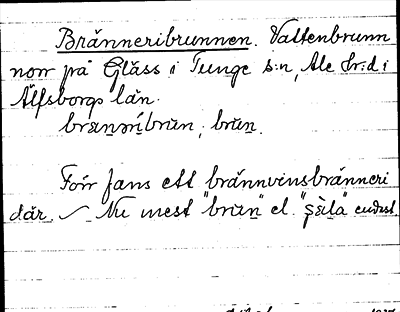 Bränneribrunnen. Vattenbrunn
norr på Gläss i Tunge s:n, Ale hr:d i
Älfsborgs län.
brænəríbrun; brun.
Förr fans ett brännvinsbränneri
där. Nu mest "brun" el. "şèla" endast.